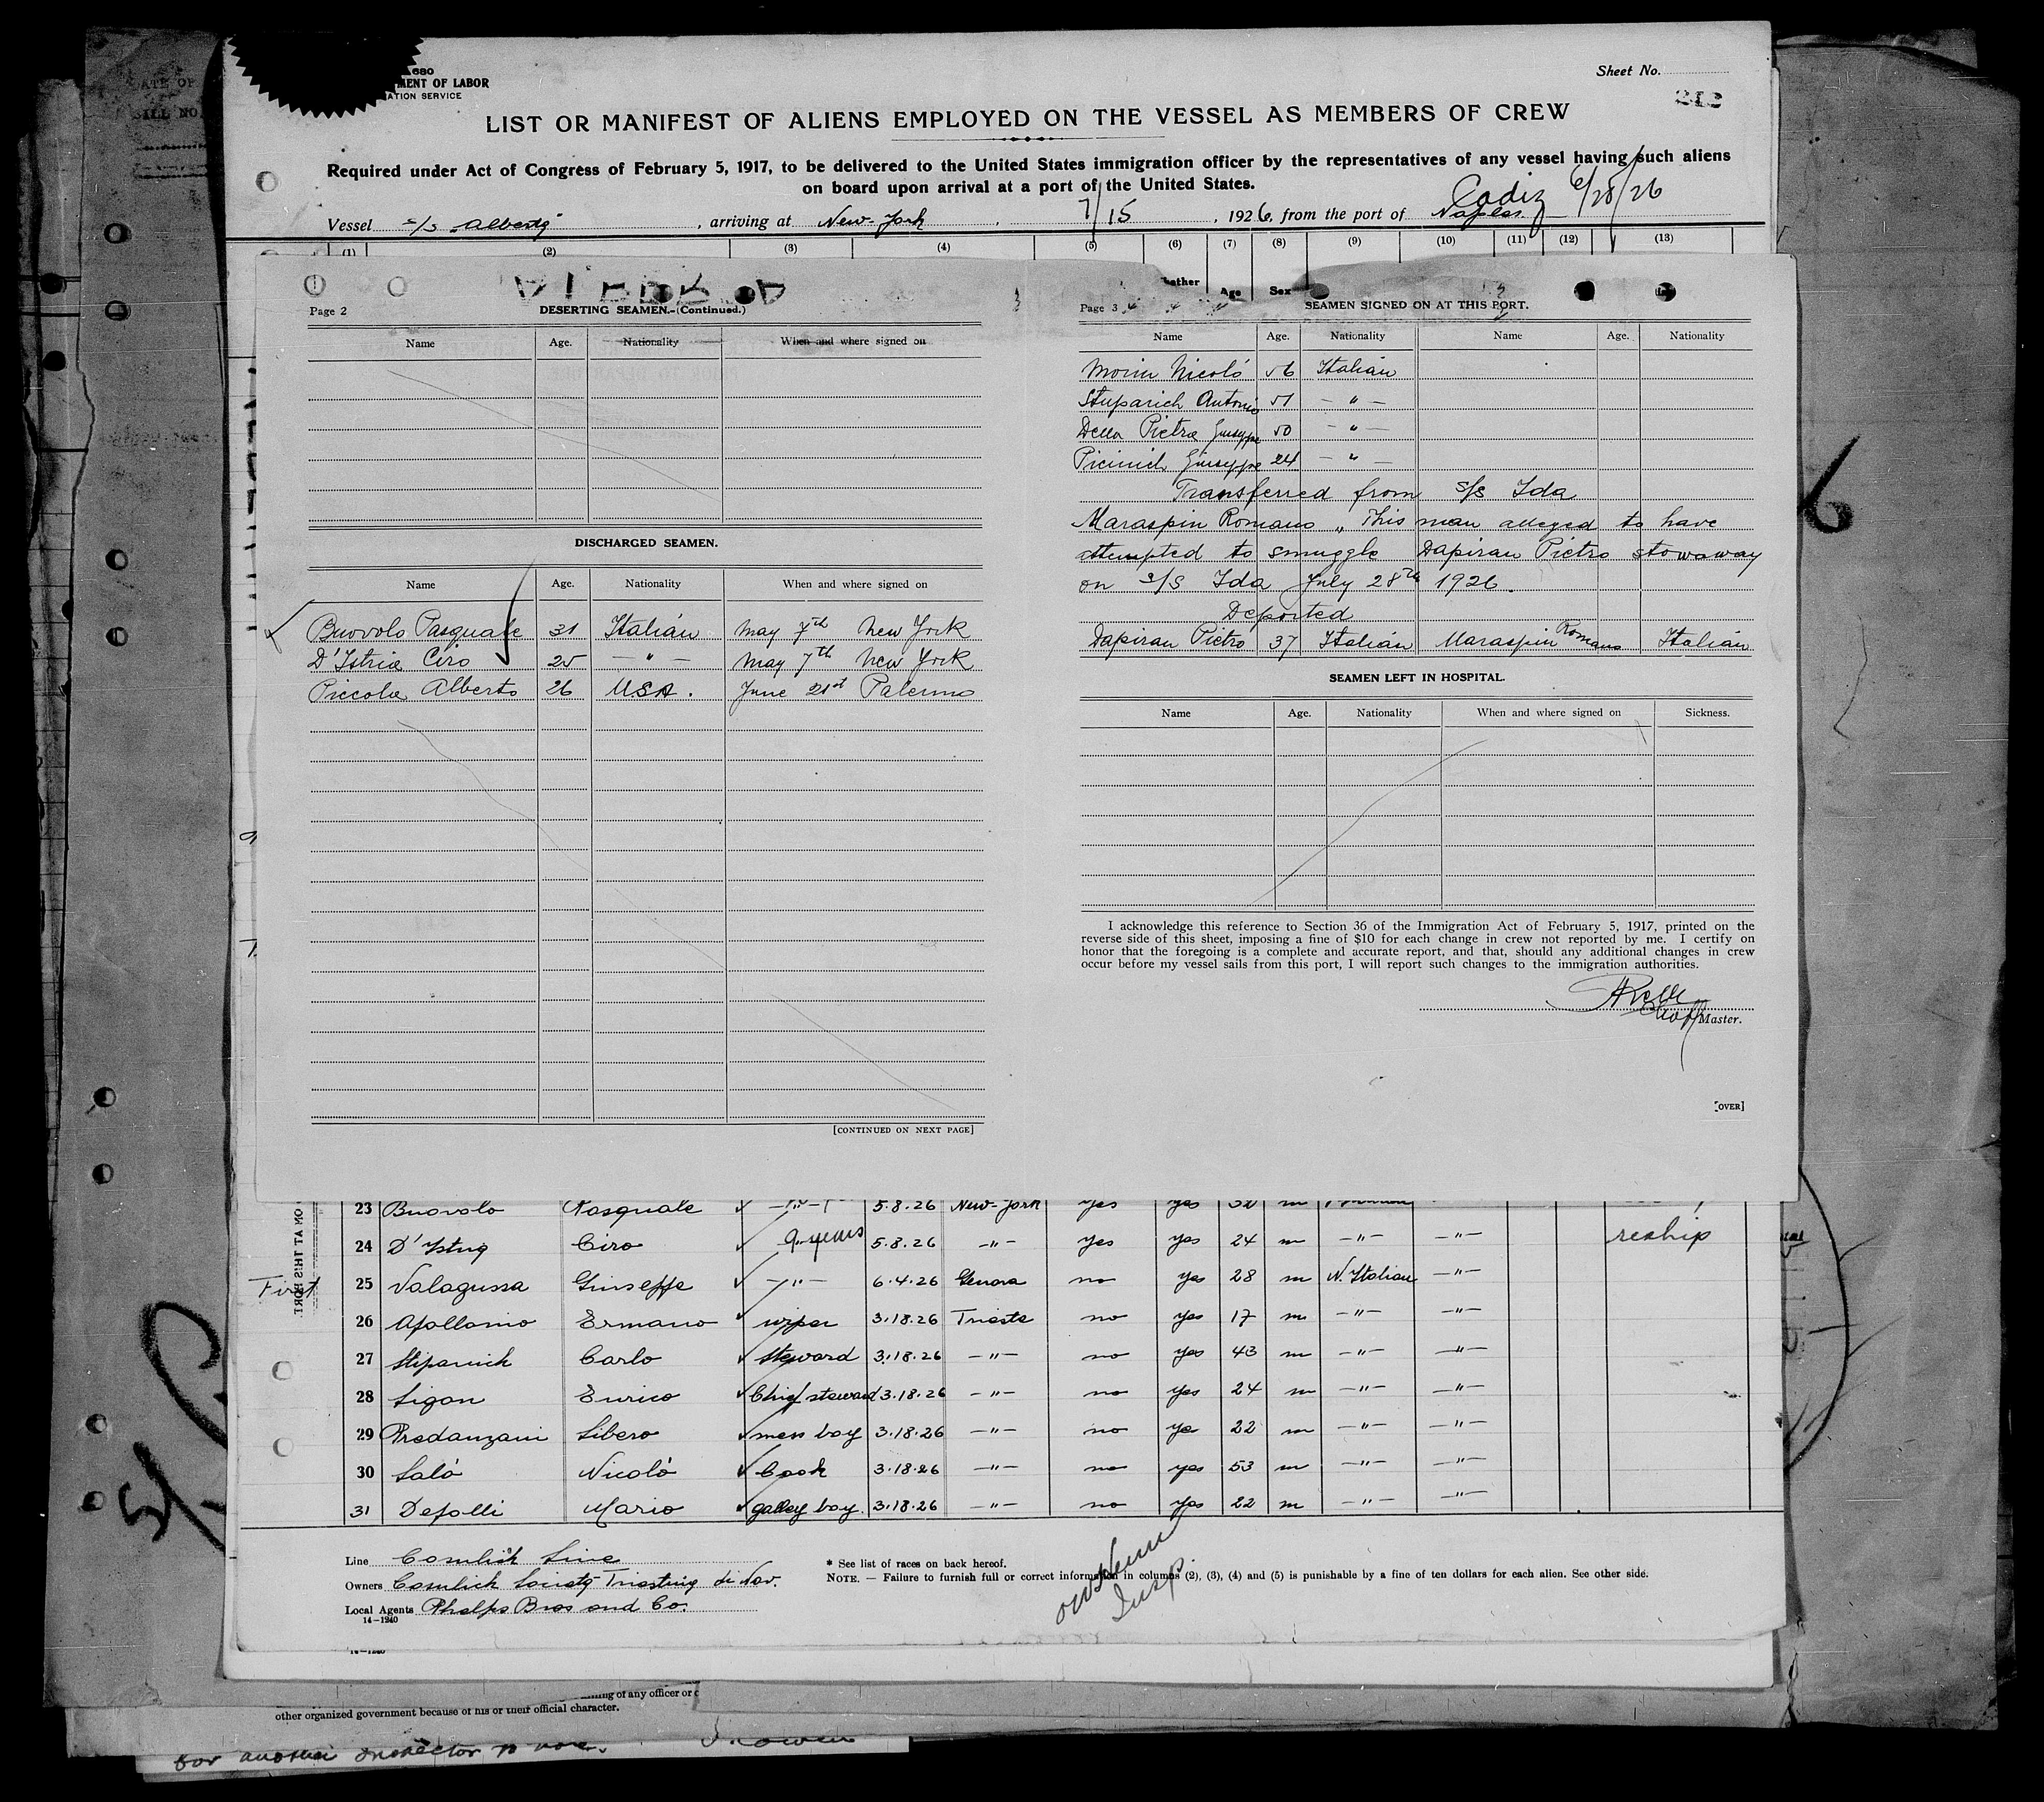 680
MENT OF LABOR
ATION SERVICE
Sheet No.
212
LIST OR MANIFEST OF ALIENS EMPLOYED ON THE VESSEL AS MEMBERS OF CREW
Required under Act of Congress of February 5, 1917, to be delivered to the United States immigration officer by the representatives of any vessel having such aliens
on board upon arrival at a port of the United States.
Cadiz 6/28/26
Vessel s/s Alberta, arriving at New-York, 7/15, 1926, from the port of Naples
(1) (2) (3) (4) (5) (6) (7) (8) (9) (10) (11) (12) (13)
ather Age Sex
Page 2
DESERTING SEAMEN.-(Continued.)
Name Age. Nationality When and where signed on
DISCHARGED SEAMEN.
Name Age. Nationality When and where signed on
Buovolo Pasquale 31 Italian May 7th New York
D'Istria Ciro 25 -"- May 7th New York
Piccola Alberto 26 U.S.A. June 21st Palermo
[CONTINUED ON NEXT PAGE]
Page 3
SEAMEN SIGNED ON AT THIS PORT.
Name Age. Nationality Name Age. Nationality
Morin Nicoló 56 Italian
Stuparich Antonio 51 -"-
Della Pietra Giuseppe 50 -"-
Picinich Giuseppe 24 -"-
Transferred from s/s Ida
Maraspin Romano " This man alleged to have
attempted to smuggle Dapiran Pietro stowaway
on s/s Ida July 28th 1926.
Deported
Dapiran Pietro 37 Italian Maraspin Romano Italian
SEAMEN LEFT IN HOSPITAL.
Name Age. Nationality When and where signed on Sickness.
I acknowledge this reference to Section 36 of the Immigration Act of February 5, 1917, printed on the
reverse side of this sheet, imposing a fine of $10 for each change in crew not reported by me. I certify on
honor that the foregoing is a complete and accurate report, and that, should any additional changes in crew
occur before my vessel sails from this port, I will report such changes to the immigration authorities.
Master.
[OVER]
23 Buovolo Pasquale -"- 5.8.26 New-York yes yes 32 m
24 D'Istria Ciro 9 years 5.8.26 -"- yes yes 24 m -"- -"- reship
First 25 Valagussa Giuseppe -"- 6.4.26 Genova no yes 28 m N. Italian -"-
26 Apollonio Ermano wiper 3.18.26 Trieste no yes 17 m -"- -"-
27 Stipanich Carlo steward 3.18.26 -"- no yes 43 m -"- -"-
28 Ligon Enrico Chief steward 3.18.26 -"- no yes 24 m -"- -"-
29 Predanzani Libero mess boy 3.18.26 -"- no ye 22 m -"- -"-
30 Saló Nicoló Cook 3.18.26 -"- no yes 53 m -"- -"-
31 Depolli Mario galley boy. 3.18.26 -"- no yes 22 m -"- -"-
Line Cosulich Line
Owners Cosulich Societa Triestina di Nav.
Local Agents Phelps Bros and Co.
14-1240
* See list of races on back hereof.
NOTE. — Failure to furnish full or correct information in columns (2), (3), (4) and (5) is punishable by a fine of ten dollars for each alien. See other side.
Insp.
of any officer or
other organized government because of his or their official character.
for another Inspector